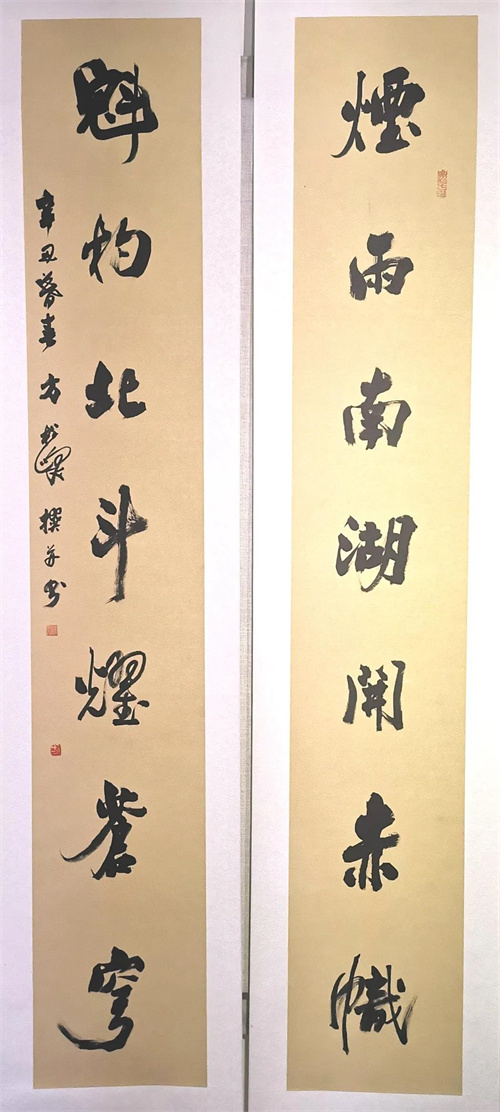 煙雨南湖開赤幟
魁杓北斗耀蒼穹
辛丑暮春方撰并書